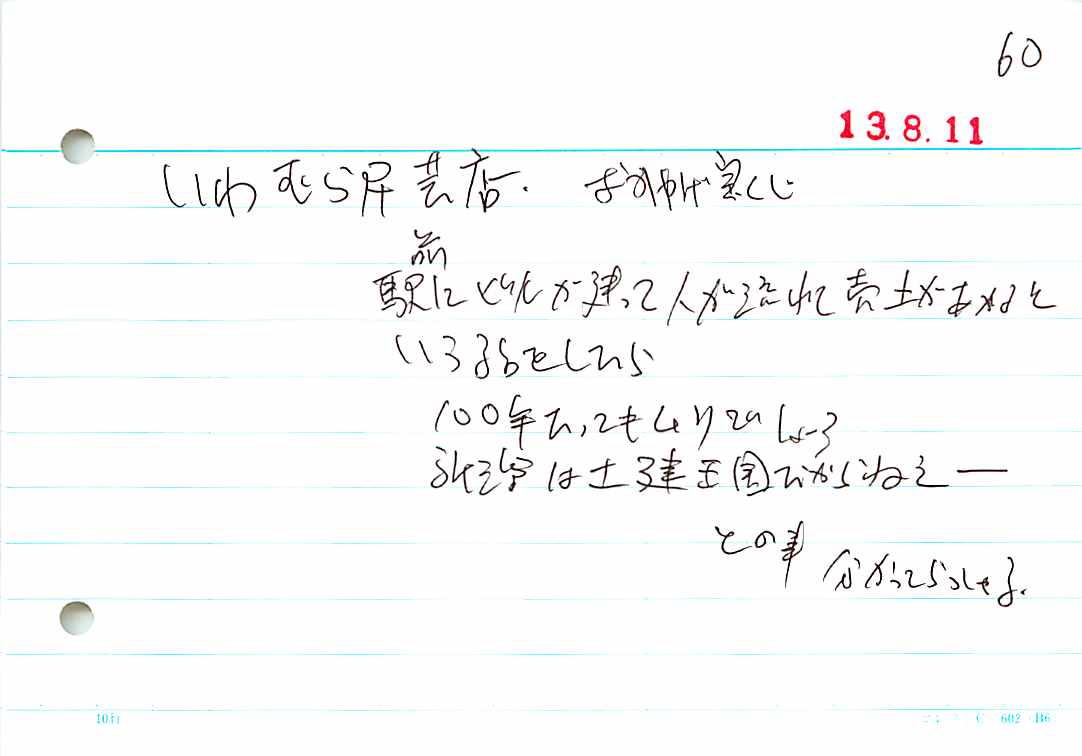 60
13.8.11
いわむら 芸店.  宝くじ
前
駅にビルが建って人が流れて売上が
いう話をしたら
100年たってもムリでしょう
は土建王国だからねえ—
との事
分かってらっしゃる.
10行
C 602 B6